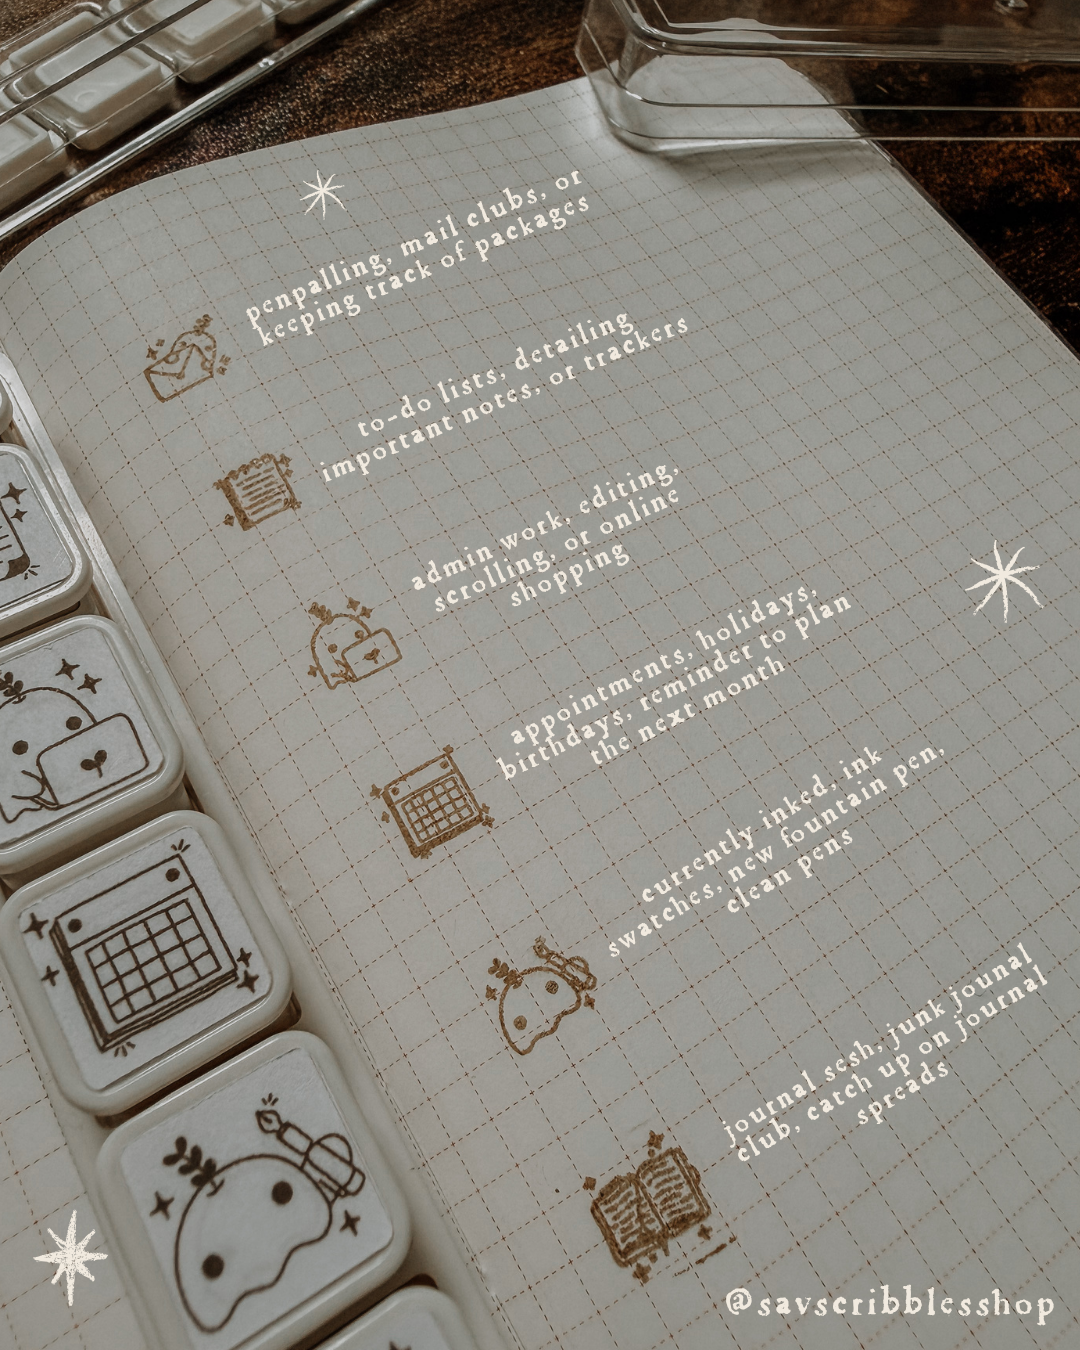 penpalling, mail clubs, or
keeping track of packages
to-do lists, detailing
important notes, or trackers
admin work, editing,
scrolling, or online
shopping
appointments, holidays,
birthdays, reminder to plan
the next month
currently inked, ink
swatches, new fountain pen,
clean pens
journal sesh, junk jounal
club, catch up on journal
spreads
@savscribblesshop